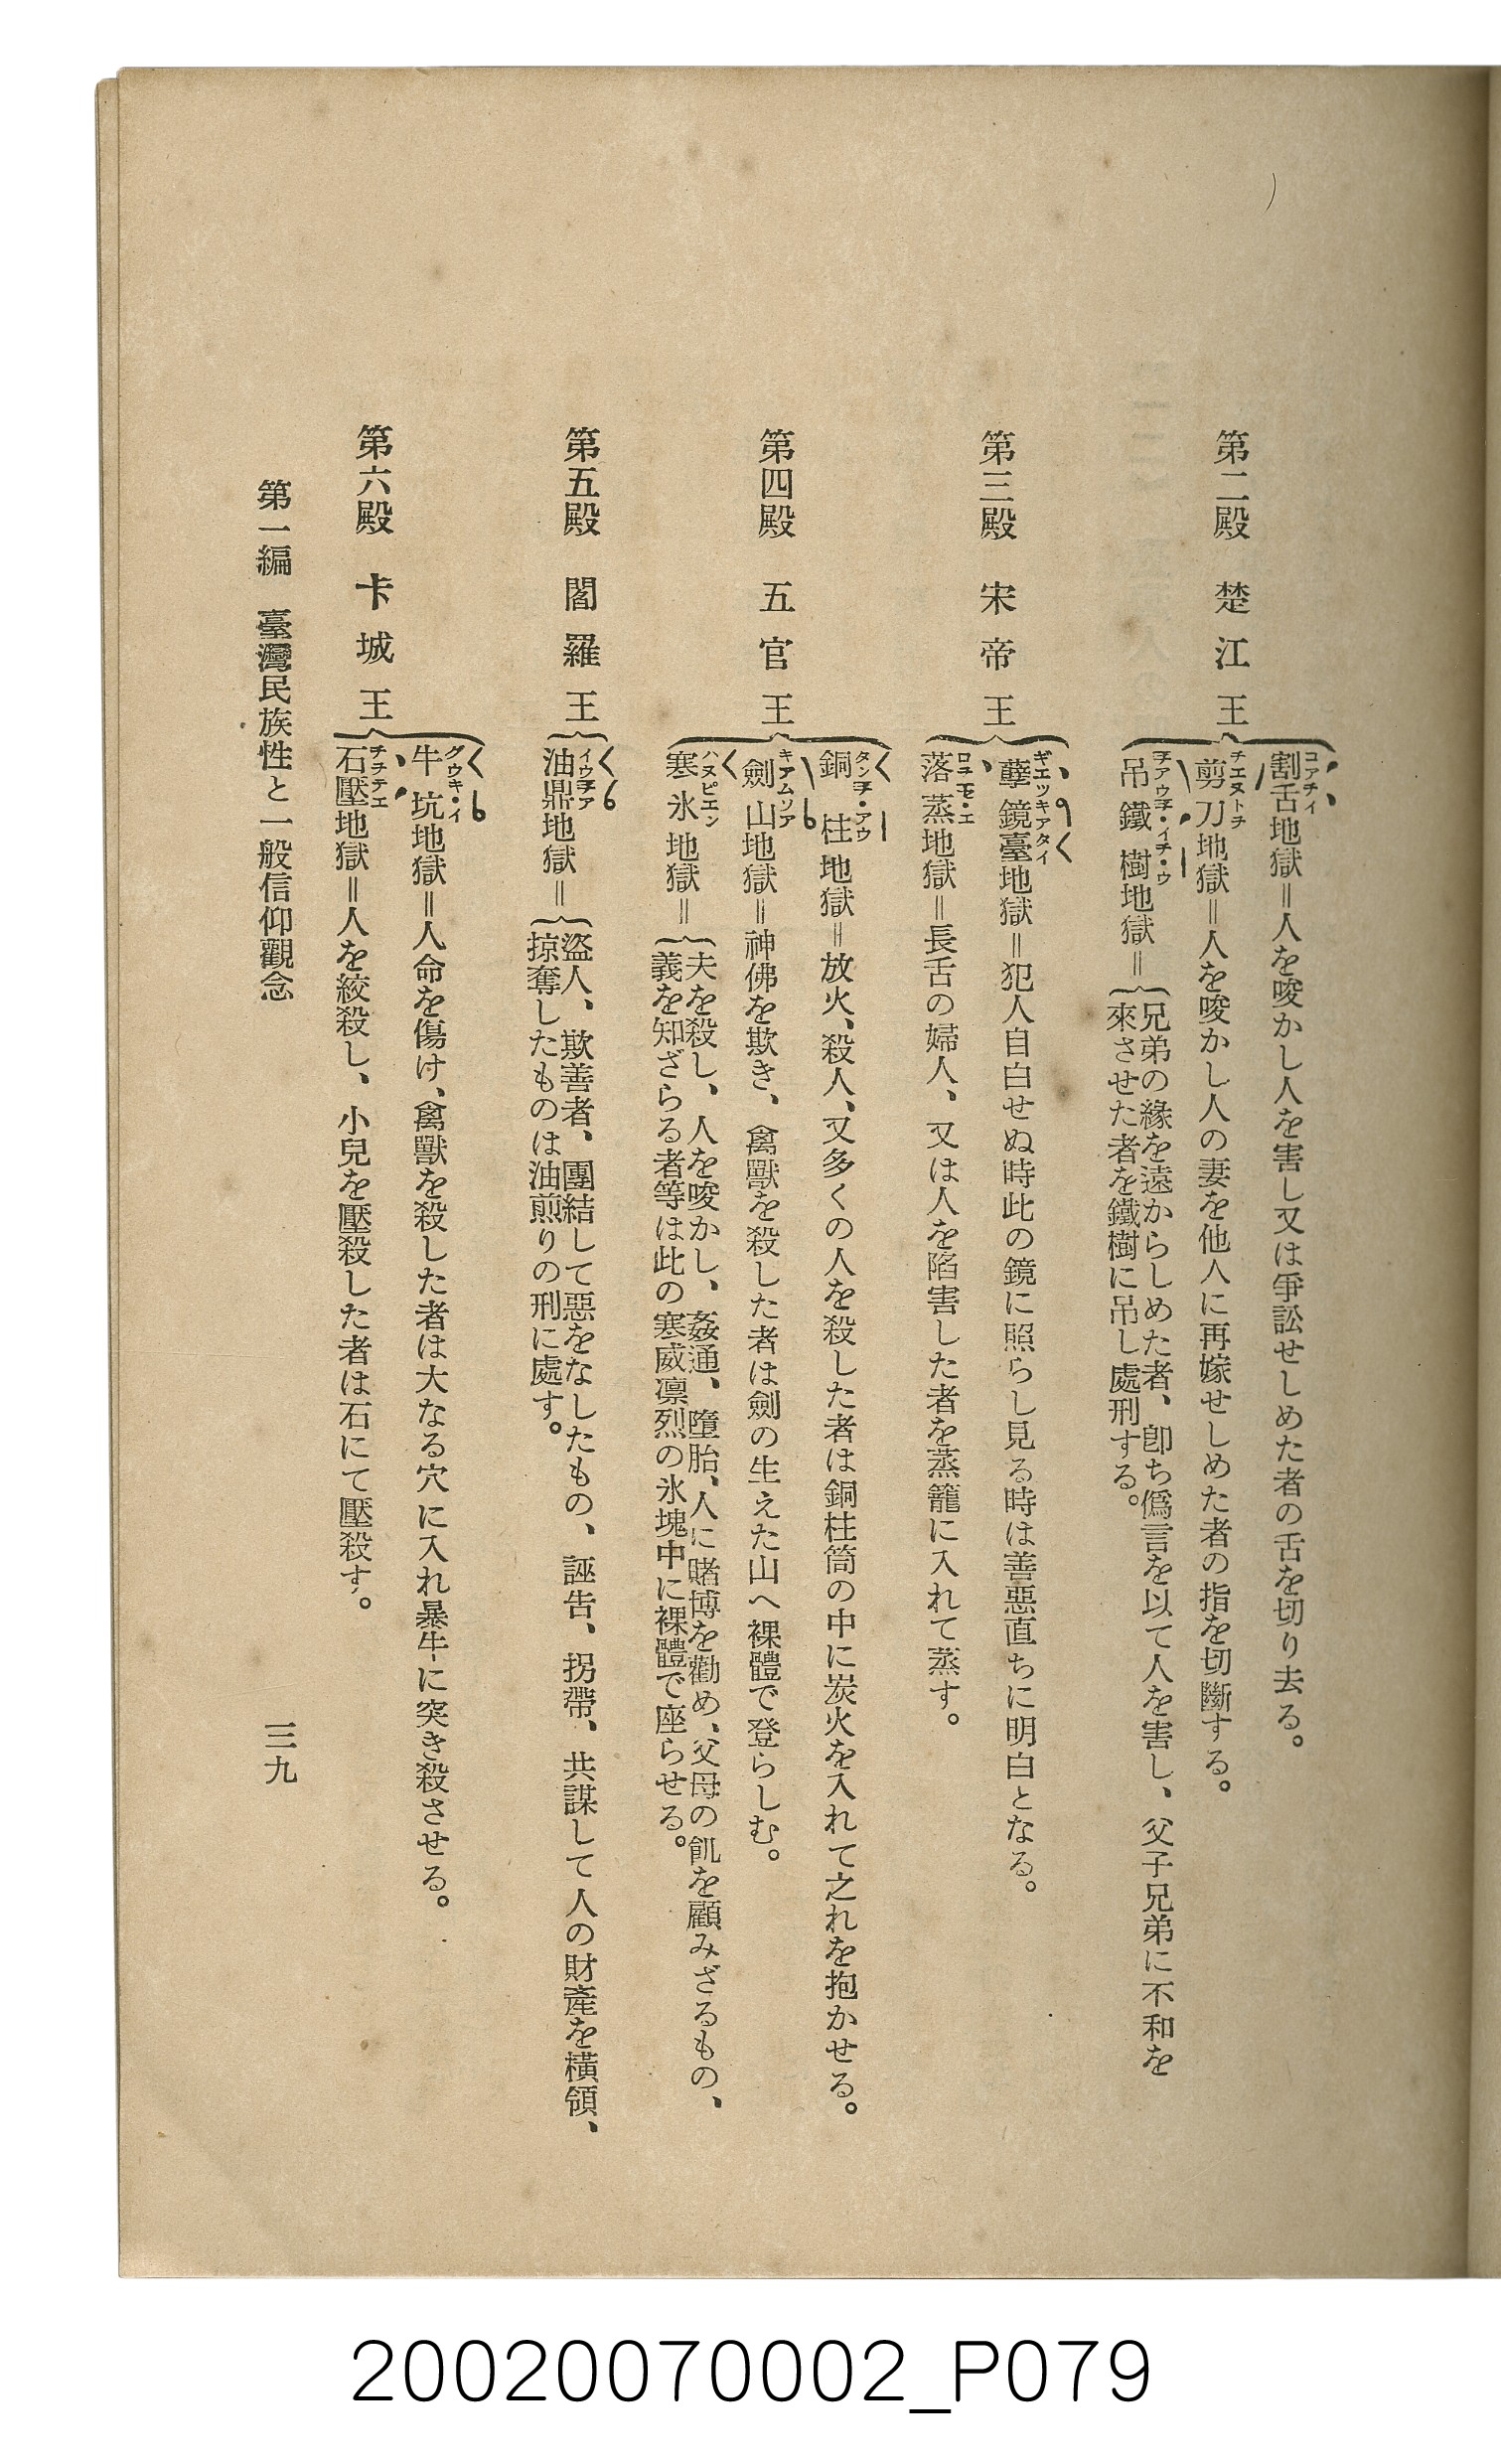 第二殿 楚江王
割舌地獄＝人を唆かし人を害し又は爭訟せしめた者の舌を切り去る。
コアチイ
剪刀地獄＝人を唆かし人の妻を他人に再嫁せしめた者の指を切斷する。
チエヌトチ
吊鐵樹地獄＝
兄弟の緣を遠からしめた者、卽ち僞言を以て人を害し、父子兄弟に不和を
來させた者を鐵樹に吊し處刑する。
第三殿 宋帝王
孽鏡臺地獄＝犯人自白せぬ時此の鏡に照らし見る時は善惡直ちに明白となる。
ギエツキアタイ
落蒸地獄＝長舌の婦人、又は人を陷害した者を蒸籠に入れて蒸す。
第四殿 五官王
銅柱地獄＝放火、殺人、又多くの人を殺した者は銅柱筒の中に炭火を入れて之れを抱かせる。
劍山地獄＝神佛を欺き、禽獸を殺した者は劍の生えた山へ裸體で登らしむ。
キアムソア
寒氷地獄＝
ハヌピエン
夫を殺し、人を唆かし、姦通、墮胎、人に賭博を勸め、父母の飢を顧みざるもの、
義を知ざらる者等は此の寒威凛烈の氷塊中に裸體で座らせる。
第五殿 閻羅王
油鼎地獄＝
イウチア
盜人、欺善者、團結して惡をなしたもの、誣吿、拐帶、共謀して人の財產を橫領、
掠奪したものは油煎りの刑に處す。
第六殿 卡城王
牛坑地獄＝人命を傷け、禽獸を殺した者は大なる穴に入れ暴牛に突き殺させる。
グウキ・イ
石壓地獄＝人を絞殺し、小兒を壓殺した者は石にて壓殺す。
チチテエ
第一編 臺灣民族性と一般信仰觀念
三九
20020070002_P079